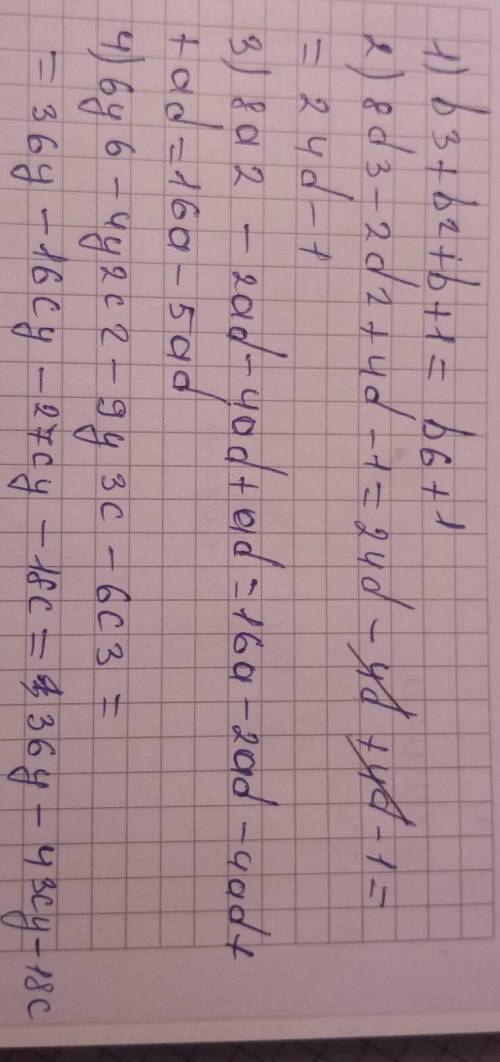 1) b3+b2+b+1= b6+1
2) 8d3-2d2+4d-1=24d-4d+4d-1=
=24d-1
3) 8a2-2ad-4ad+ad=16a-2ad-4ad+
+ad=16a-5ad
4) 6y6-4y2c2-9y3c-6c3=
=36y-16cy-27cy-18c=36y-43cy-18c